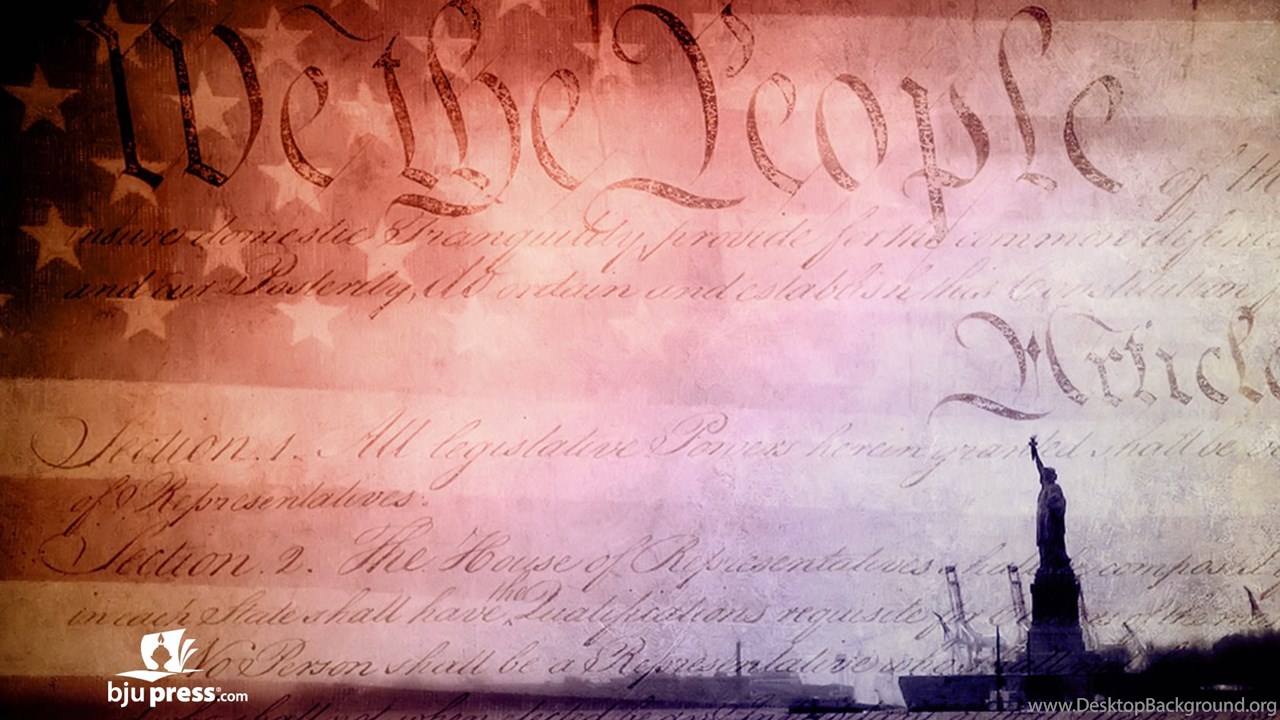 We the People of th
nsure domestic Tranquility, provide for the common defenc
and our Posterity, do ordain and establish this Constitution f
Article
Section. 1. All legislative Powers herein granted shall be
of Representatives.
Section. 2. The House of Representatives shall be composed
the
in each State shall have Qualifications requisite for of the
No Person shall be a Representative who shall
bju press.com
www.DesktopBackground.org